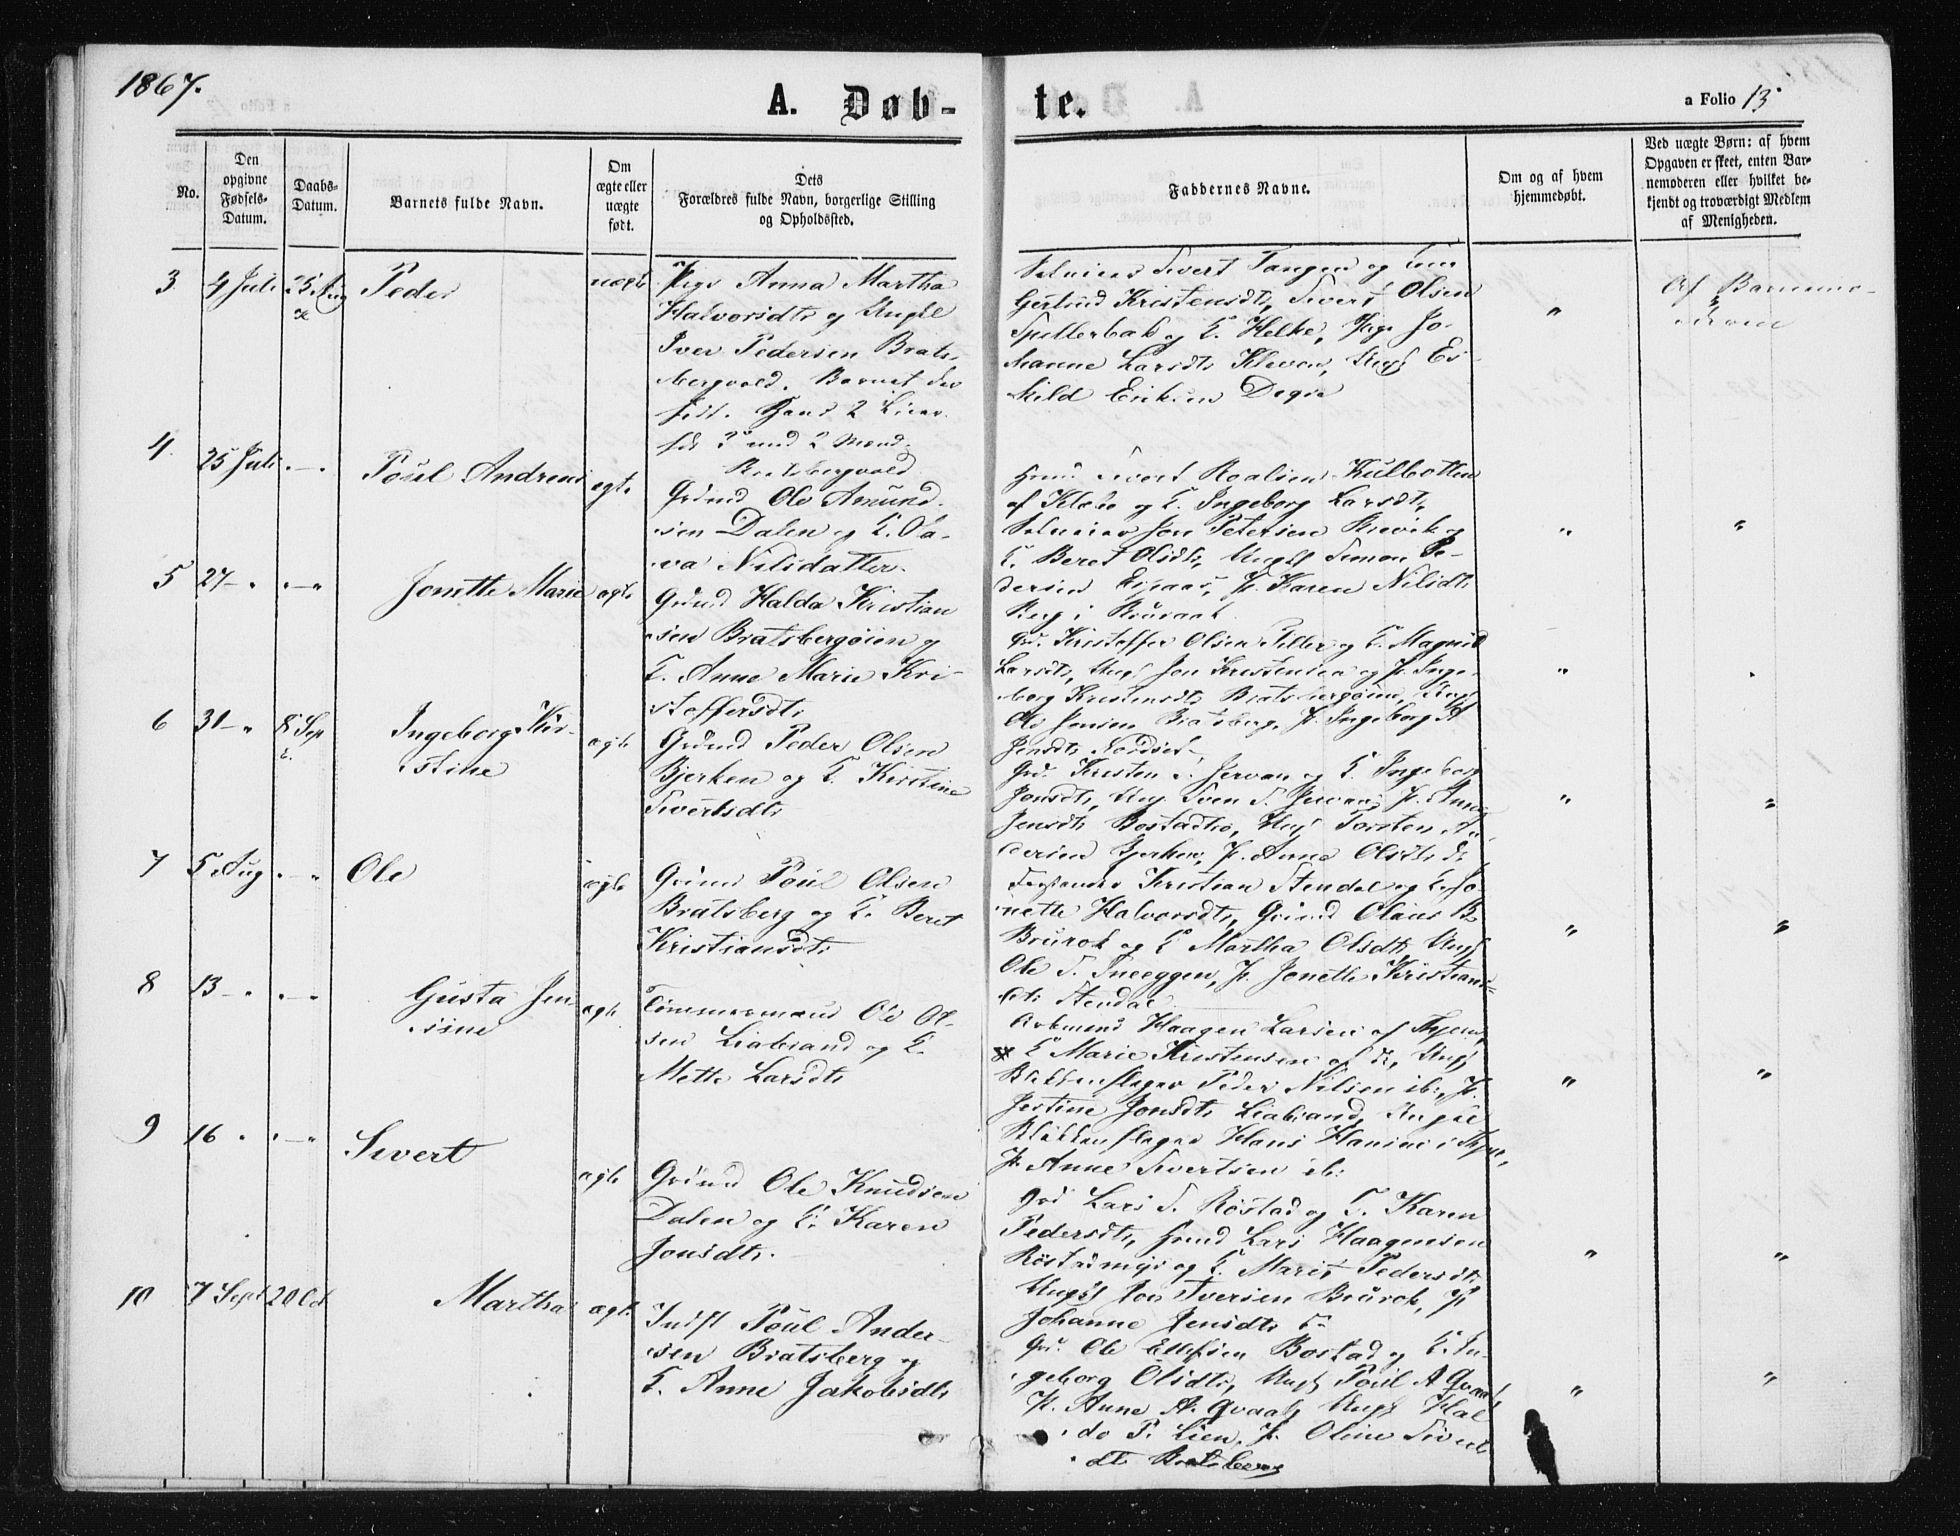 1867.
A. Døb-
te.
a Folio 13
No.
Den opgivne Fødsels-Datum.
Daabs-Datum.
Barnets fulde Navn.
Om ægte eller uægte født.
Dets Forældres fulde Navn, borgerlige Stilling og Opholdssted.
Faddernes Navne.
Om og af hvem hjemmedøbt.
Ved uægte Børn: af hvem Opgaven er skeet, enten Barnemoderen eller hvilket bekjendt og troværdigt Medlem af Menigheden.
3 4 Juli 25 Aug Peder uægte
Pige Anna Martha
Halvorsdt og Ungkl
Iver Pedersen Brats-
bergvold. Barnet
2
Bratsbergvold
Selveier Sivert Tangen og
Gertrud Kristensdt, Sivert Olsen
Spillerbak og K. Helke, Pige Jo-
hanne Larsdt Kleven, Ungk Es-
kild Eriksen Digre
"
Af Barnemo-
deren
4 25 Juli " Poul Andreas ægte
Grdmd Ole Amund-
sen Dalen og K. Ola-
va Nilsdatter.
Sivert Roalsen Kulbotten
af Klæbo og K. Ingeborg Larsdt,
Selveier Jon Petersen
K. Beret Olsdt, Ungk Simon Pe-
dersen P. Karen Nilsdt
Berg i
" "
5 27 " " Jonette Marie ægte
Grdmd Halda Kristian
sen Bratsbergøien og
K. Anne Marie Kri-
stoffersdt
Gd. Kristoffer Olsen Tiller og K. Magnild
Larsdt, Ungk Jon Kristensen og P. Inge-
borg Kristensdt Bratsbergøien, Ungk
Ole Jensen Bratsberg, P. Ingeborg
Jensdt Nordset
" "
6 31 " 8 Sep Ingeborg Kir-
stine
ægte
Grdmd Peder Olsen
Bjerken og K. Kirstine
Sivertsdt
Gd. Kristen S. Jervan og K. Ingeborg
Jonsdt, Ungk Sven S. Jervan, P. Anne
Jensdt Bostadtrø, Ungk Torsten An-
dersen Bjerken, P. Anne Olsdt do
" "
7 5 Aug " Ole ægte
Grdmd Poul Olsen
Bratsberg og K. Beret
Kristiansdt
Kristian Stendal og K. Jo-
nette Halvorsdt, Grdmd Olaus B
Brurok og K Martha Olsdt, Ungk
Ole S. Sneeggen, P. Jonette Kristians-
dt Stendal
" "
8 13 " " Gusta Jen-
sine
ægte
Tømmermand Ole Ol-
sen Liabrand og K.
Mette Larsdt
Arbmand Haagen Larsen af Thjem,
K Marie Kristensen af do, Ungk
Blikkenslager Peder Nilsen ib., P.
Jestine Jonsdt Liabrand, Ungkl
Blikkenslager Hans Hansen i Thjem,
P. Anne Sivertsen ib.
" "
9 16 " " Sivert ægte
Grdmd Ole Knudsen
Dalen og K. Karen
Jonsdt.
Grd Lars S. Røstad og K. Karen
Pedersdt, Husmd Lars Haagensen
Røstadmyr og K. Marit Pedersdt,
Ungk Jon Iversen Brurok, P.
Johanne Jensdt
" "
10 7 Sept 20 Oct Martha ægte
Indst Poul Ander-
sen Bratsberg og
K. Anne Jakobsdt
Gd. Ole Ellefsen Bostad og K. In-
geborg Olsdt, Ungk Poul A Qvaal
P. Anne A. Qvaal, Ungk Hal-
do P. Lien, P. Oline Sivert
dt Bratsberg
" "